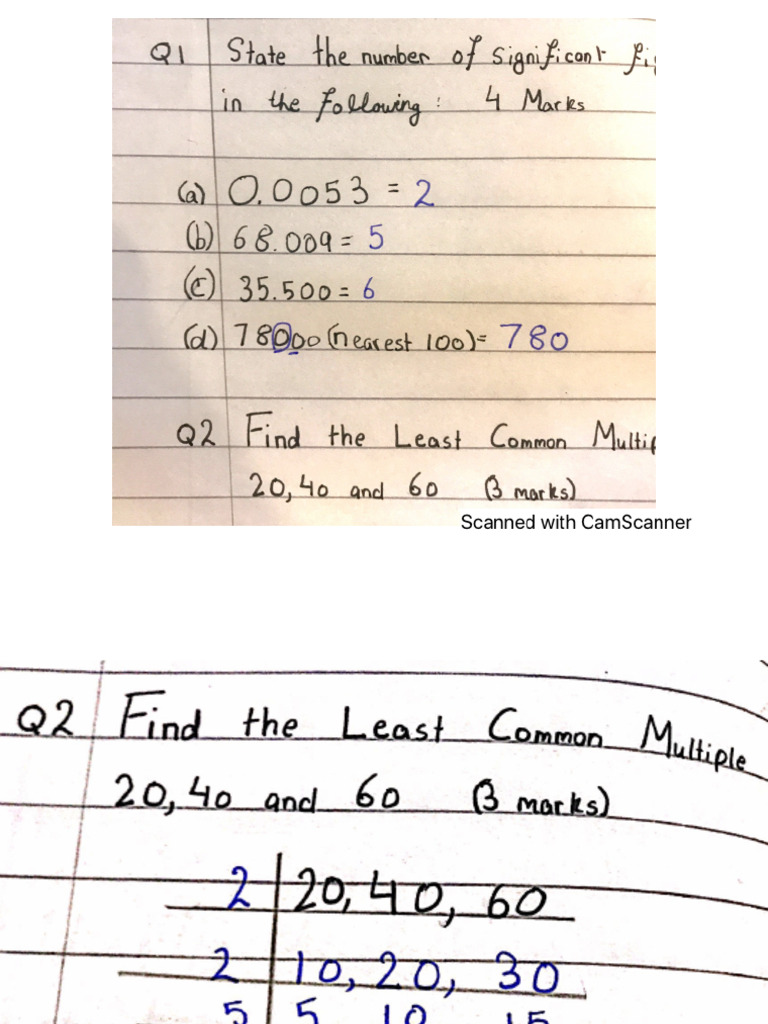 Q1 State the number of significant
in the following : 4 Marks
(a) 0.0053 = 2
(b) 68.009 = 5
(c) 35.500 = 6
(d) 78000 (nearest 100) = 780
Q2 Find the Least Common
20, 40 and 60 (3 marks)
Scanned with CamScanner
Q2 Find the Least Common Multiple
20, 40 and 60 (3 marks)
2 20, 40, 60
2 10, 20, 30
5 5 10 15